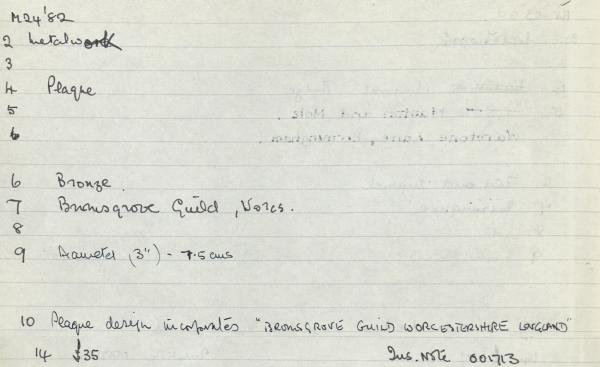 M24'82
2 Metalwork
3
4 Plaque
5
6
6 Bronze.
7 Bromsgrove Guild, Worcs.
8
9 Diameter (3") - 7.5 cms
10 Plaque design incorporates "BROMSGROVE GUILD WORCESTERSHIRE ENGLAND"
14 £35 Ins. Note 001713